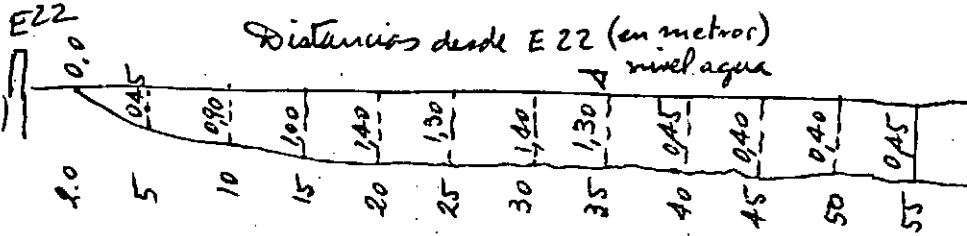 E22
Distancias desde E 22 (en metros)
nivel agua
0,0 0,45 0,90 1,00 1,40 1,30 1,40 1,30 0,45 0,40 0,40 0,45
2.0 5 10 15 20 25 30 35 40 45 50 55